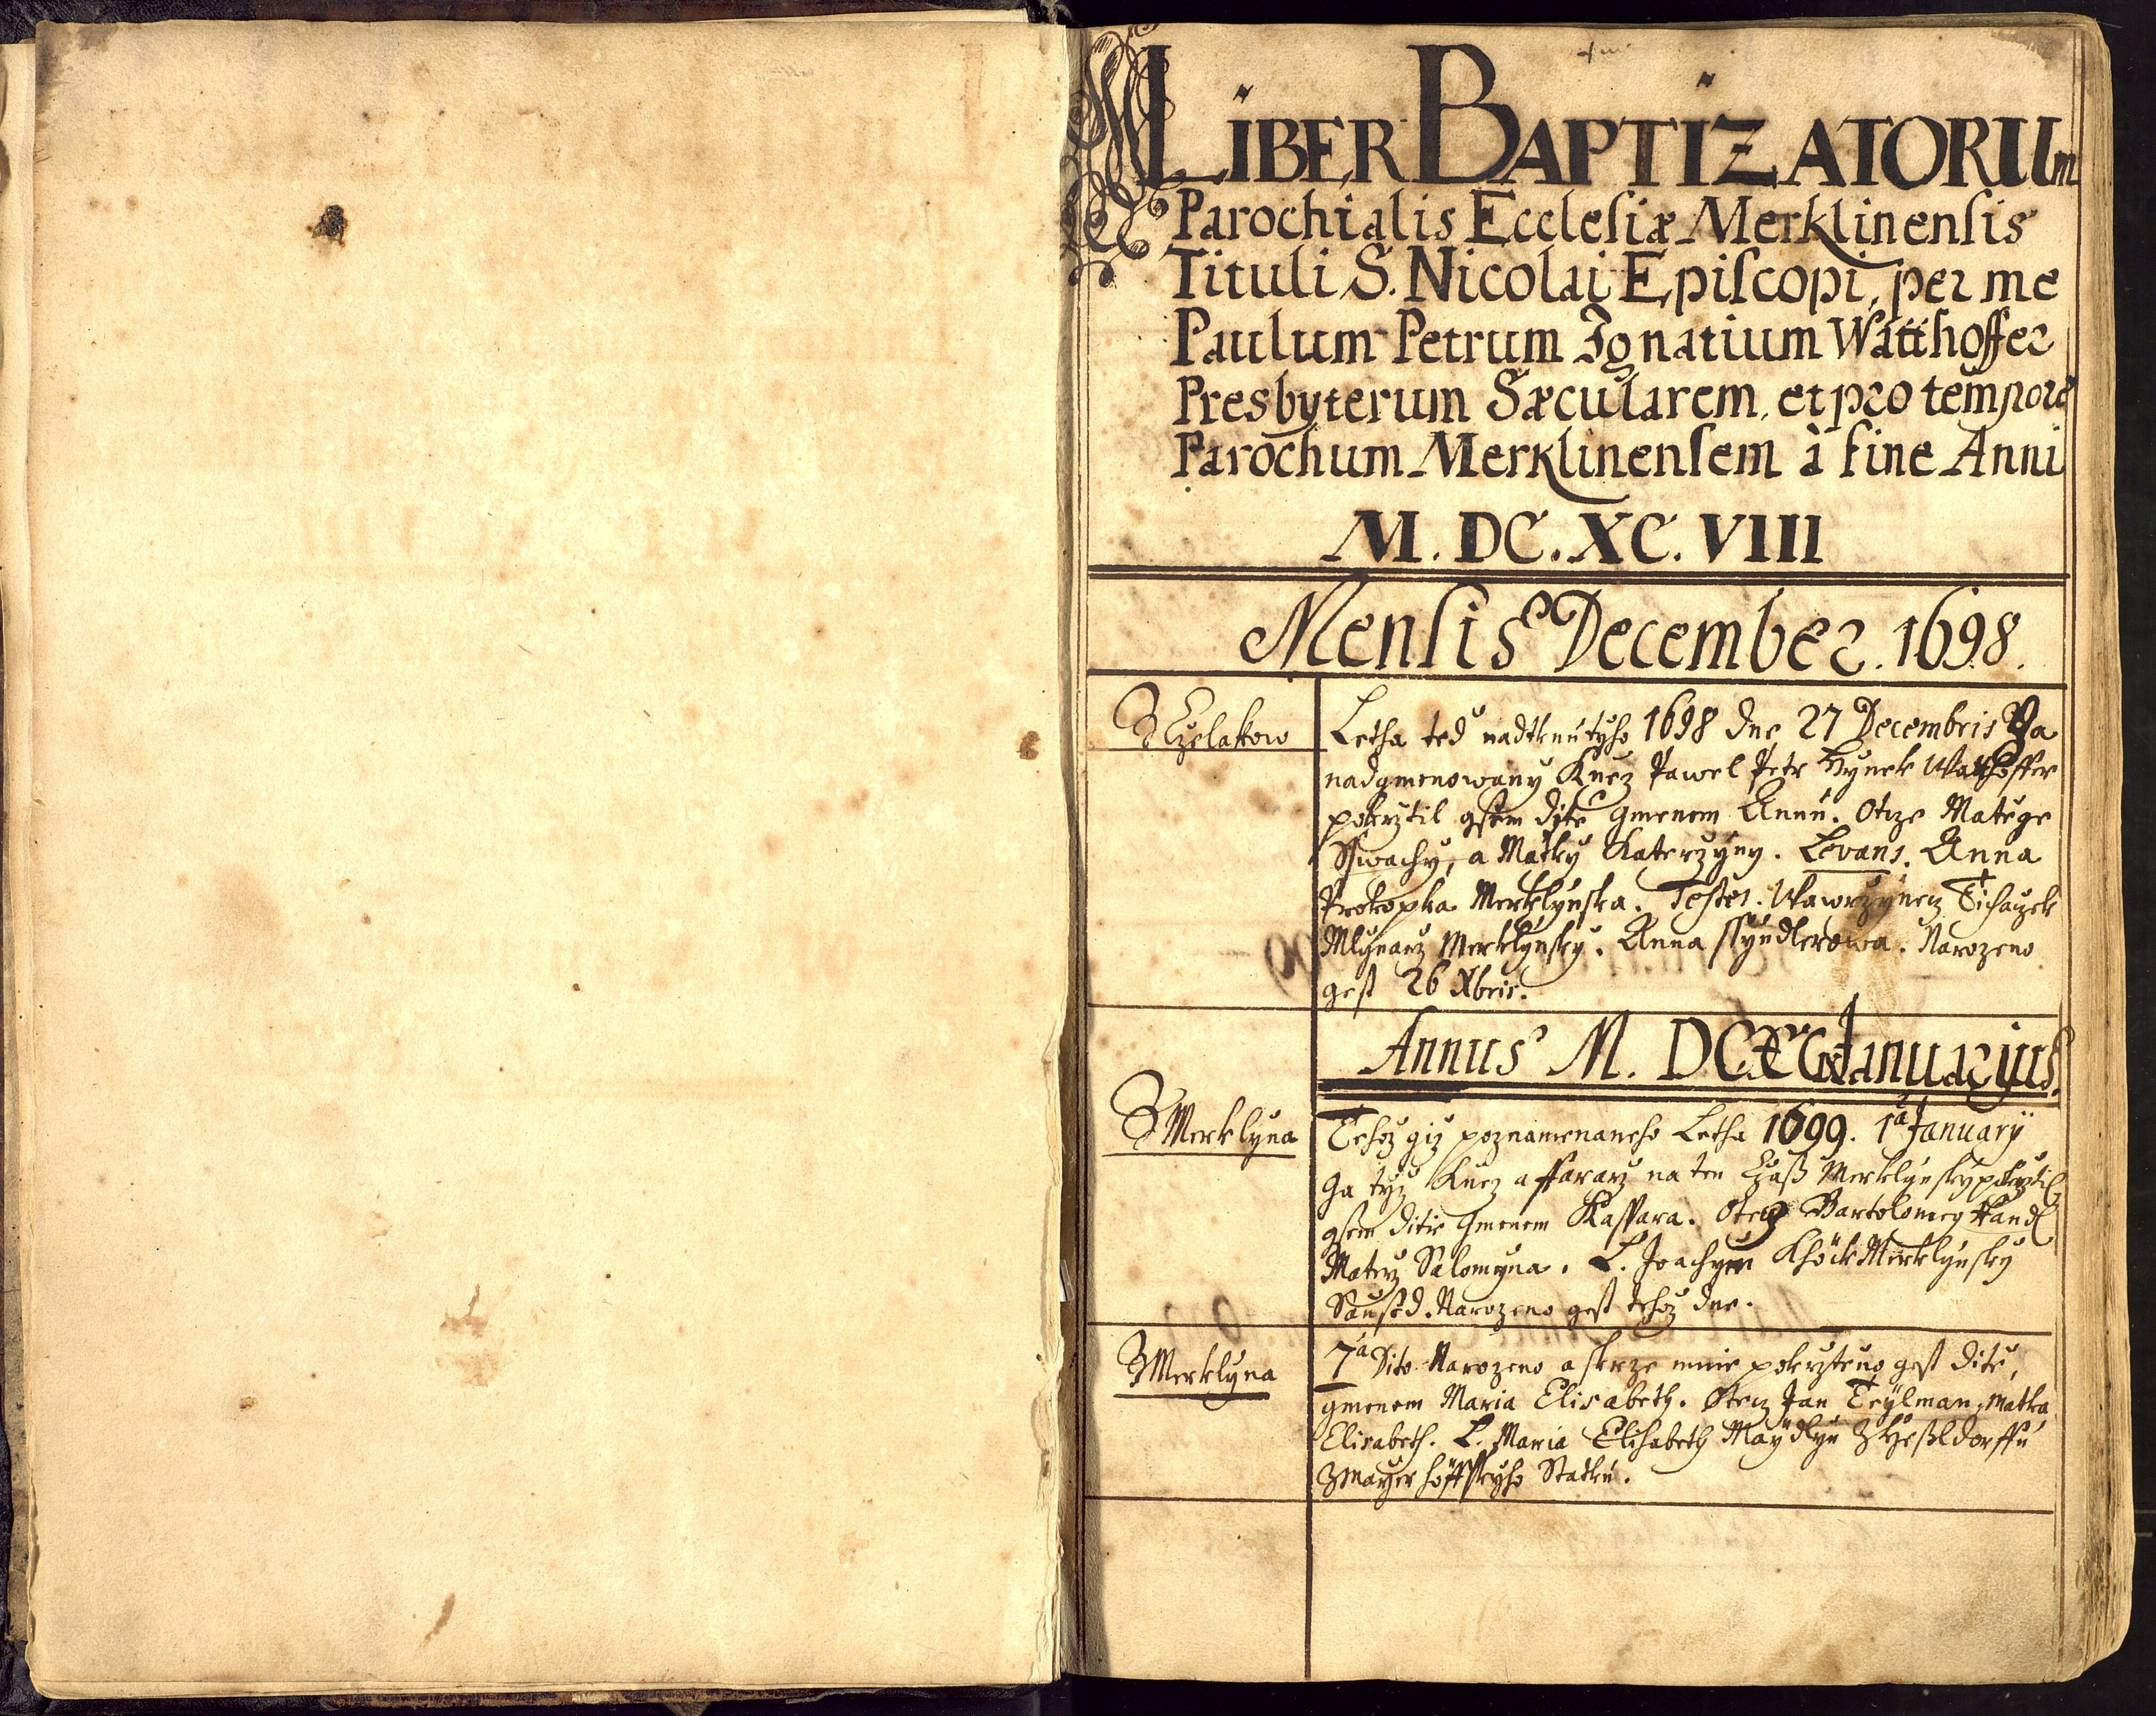 LIBER BAPTIZATORUm
Parochialis Ecclesiæ Merklinensis
Tituli S. Nicolai Episcopi, per me
Paulum Petrum Ignatium Watthoffer
Presbyterum Sæcularem, et pro tempore
Parochum Merklinensem à fine Anni
M. DC. XC. VIII
Mensis December. 1698.
Z Czelakow
Letha ted nadtknutyho 1698 dne 27 Decembris Ya
nadgmenowany Knez Pawel Petr Hynek Watthoffer
pokrztil gsem dite gmenem Annu. Otcze Matege
Sswachy, a Matky Katerzyny. Levans. Anna
Prokopka Merklynska. Testes. Wawrzynecz Tichaczek
Mlynarz Merklynsky. Anna ssyndlerowa. Narozeno
gest 26 Xbris.
Annus M. DCXCIX Januarijus.
Z Merklyna
Tehoz giz poznamenaneho Letha 1699. 1a January
Ga tyz Knez a ffararz na ten Czass Merklynsky pokrztil
gsem ditie Gmenem Kasspara. Otecz Bartolomeg Handl
Materz Salomyna. L. Joachym Khöck Merklynsky
Saused. Narozeno gest tehoz dne.
Z Merklyna
7a Dito Narozeno a skrze mnie pokrzteno gest dite,
gmenem Maria Elisabeth. Otecz Jan Teylman, Matka
Elisabeth. L. Maria Elisabeth Maydlyn Z Hessldorffu
Z Mayerhöffskyho Statku.